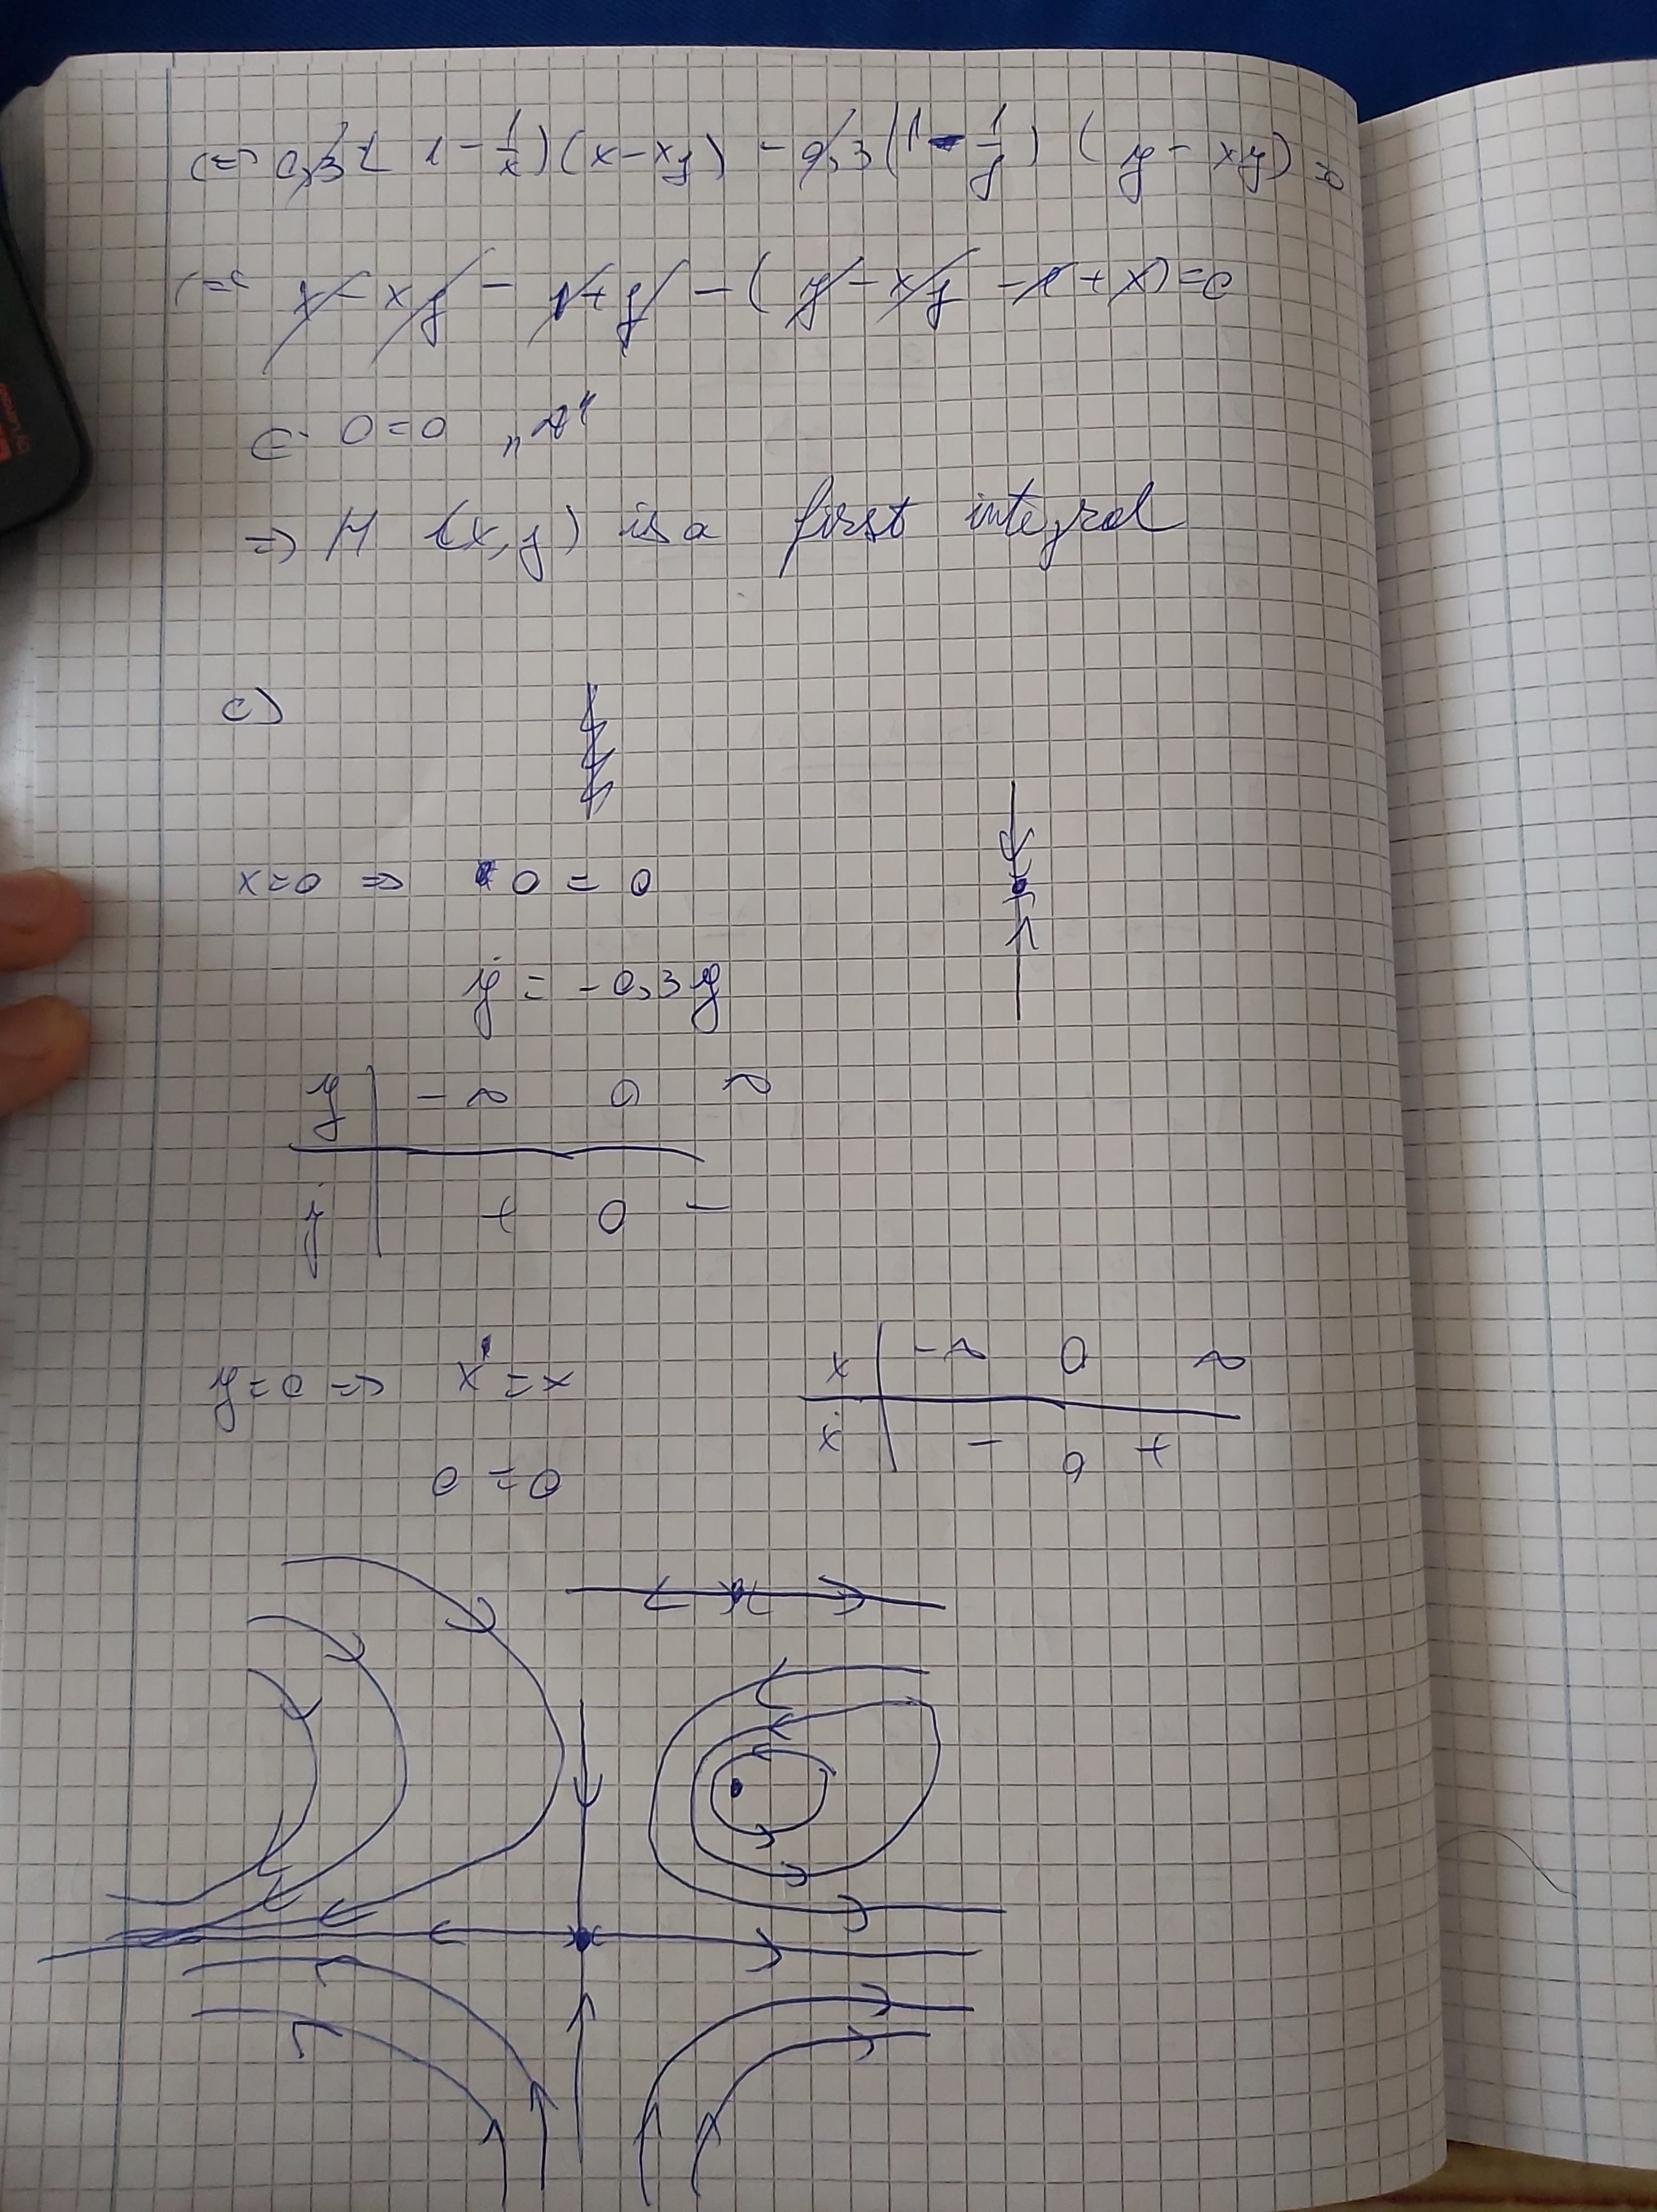 <=> 0,3(1-1/x)(x-xy) - 0,3(1-1/y)(y-xy)=0
<=> x-xy-1+y-(y-xy-1+x)=0
<=> 0=0 „A“
=> H (x,y) is a first integral
c)
x=0 => 0 = 0
ẏ = -0,3y
y | -∞ 0 ∞
ẏ | + 0 -
y=0 => ẋ = x
0 = 0
x | -∞ 0 ∞
ẋ | - 0 +